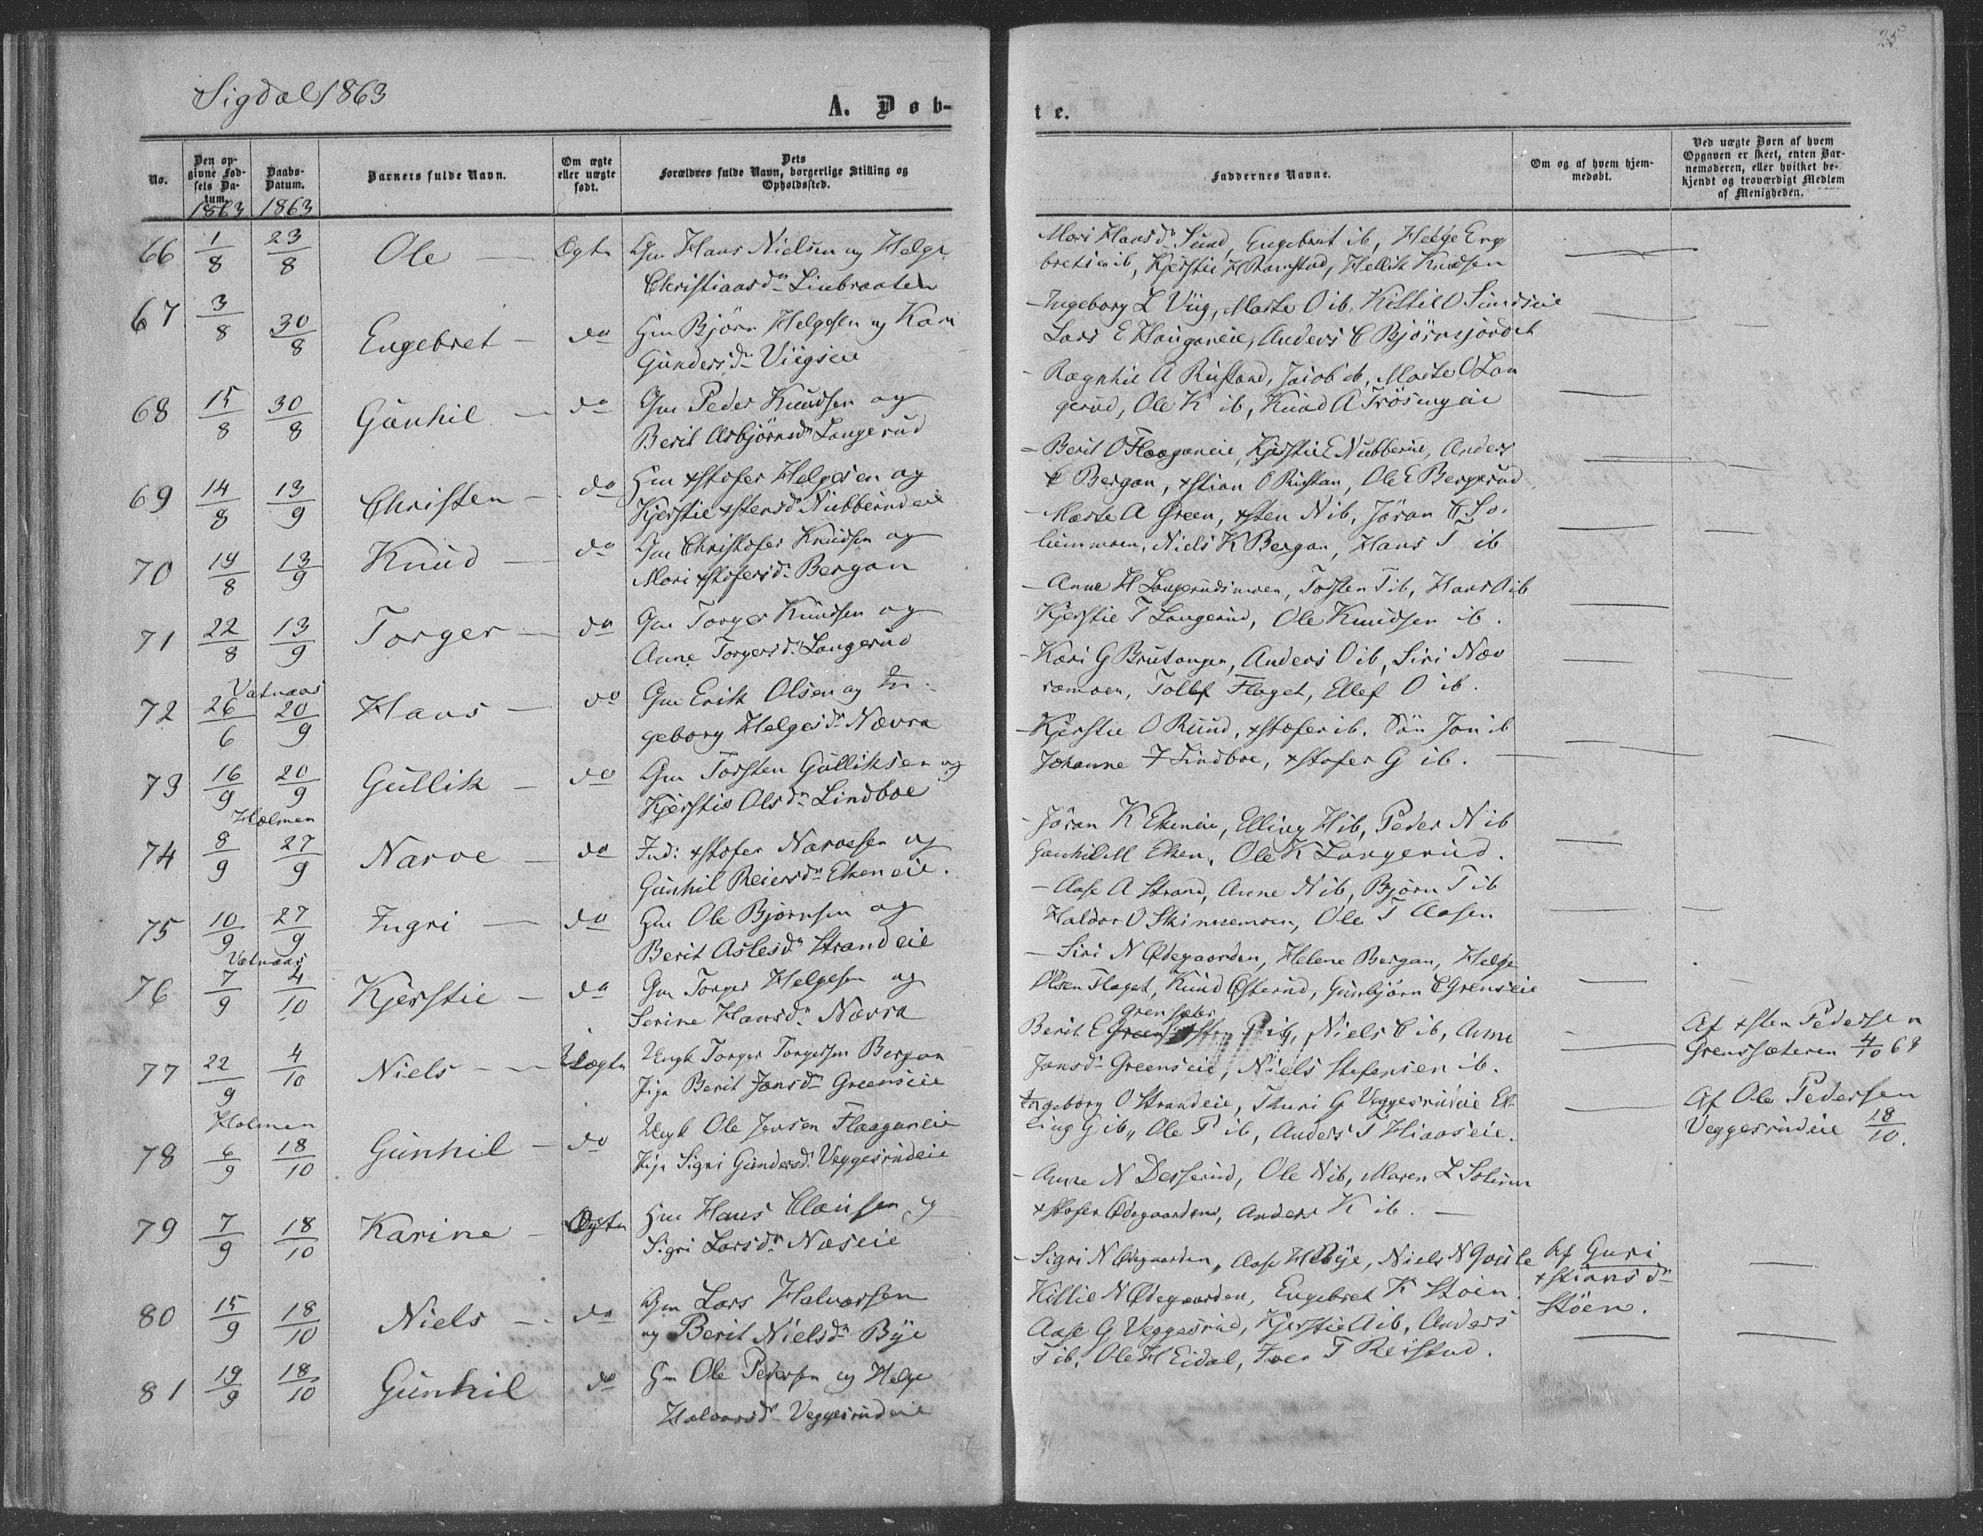 25
Sigdal 1863
A. Døb-
te.
No.
Den op-
givne Fød-
sels Da-
tum.
1863
Daabs-
Datum.
1863
Barnets fulde Navn.
Om ægte
eller uægte
født.
Dets
Forældres fulde Navn, borgerlige Stilling og
Opholdssted.
Faddernes Navne.
Om og af hvem hjem-
medøbt.
Ved uægte Børn af hvem
Opgaven er skeet, enten Bar-
nemoderen, eller hvilket be-
kjendt og troværdigt Medlem
af Menigheden.
66 1/8 23/8 Ole — Ægte Gm Hans Nielsen og Helge
Christiansdr Linbraaten
Mari Hansdr Sund, Engebret ib, Helge Enge
bretsen ib, Kjerstie H Ramstad, Hellik Knudsen
67 3/8 30/8 Engebret — do Hm Bjørn Helgesen og Kari
Gundersdr Viigseie
Ingeborg L Viig, Marte O ib, Kittil O Sundseie
Lars E Hauganeie, Anders C Bjørnsjordet
68 15/8 30/8 Gunhil — do Gm Peder Knudsen og
Berit Asbjørnsdr Langerud
Rægnhil A Rustand, Jacob ib, Marte O Lan
gerud, Ole K ib, Knud A
69 14/8 13/9 Christen — do Hm xstofer Helgesen og
Kjerstie xstensdr Nubberudeie
Berit O Flaaganeie, Kjerstie E Nubberud, Anders
Bergan, xstian O Rustan, Ole E Bergerud
70 19/8 13/9 Knud — do Gm Christofer Knudsen og
Mari xstofersdr Bergan
Marte A Green, xsten N ib, Jöran C So-
liemmoen, Niels K Bergan, Hans T ib
71 22/8 13/9 Torger — do Gm Torger Knudsen og
Anne Torgersdr Langerud
Anne H Langerudsmoen, Torsten T ib, Hans A ib
Kjerstie T Langerud, Ole Knudsen ib.
Vatnaas
72 26/6 20/9 Hans — do Gm Erik Olsen og In-
geborg Helgesdr Nævra
Kari G Brutangen, Anders O ib, Siri Næv
ramoen, Tollef Flaget, Ellef O ib.
73 16/9 20/9 Gullik — do Gm Torsten Gulliksen og
Kjerstie Olsdr Lindboe
Kjerstie O Ruud, xstofer ib. Sön Jon ib
Johanne Lindboe, xstofer G ib.
Holmen
74 8/9 27/9 Narve — do Ind: xstofer Narvesen og
Gunhil Reiersdr Ekeneie.
Jöran K Ekeneie, Elling H ib, Peder N ib
Gunhil M Eken, Ole K Langerud.
75 10/9 27/9 Ingri — do Hm Ole Bjørnsen og
Berit Aslesdr Strandeie
Aase A Strand, Anne N ib, Bjørn T ib
Haldor O Skinnemoen, Ole T Aasen
Vatnaas
76 7/9 4/10 Kjerstie — do Gm Torger Helgesen og
Serine Hansdr Nævra
Siri N Ødegaarden, Helene Bergan, Helge
Olsen Flaget, Knud Østerud, Gunbjørn E Grenseie
77 22/9 4/10 Niels — Uægte Ungk Torger Torgersen Bergan
Piga Berit Jonsdr Greenseie
Grensæter
Berit E P ib, Niels C ib, Anne
Jonsdr Greenseie, Niels Stefensen ib.
Af xsten Pedersen
Grensæteren 4/10 63
Holmen
78 6/9 18/10 Gunhil — do Ungk Ole Jensen Flaaganeie
Piga Sigri Gundersdr Veggesrudeie
Ingeborg O Strandeie, Thuri G Veggesrudeie El-
ling G ib, Ole P ib, Anders T Hiaaseie.
Af Ole Pedersen
Veggesrudeie 18/10.
79 7/9 18/10 Karine — Ægte Hm Hans Clausen og
Sigri Larsdr Næseie
Anne N Desserud, Ole N ib, Maren L Solium
xstofer Ødegaardens, Anders K ib. —
80 15/9 18/10 Niels — do Gm Lars Halvorsen
og Berit Nielsdr Bye
Sigri N Ødegaarden, Aase H Bye, Niels N
Killie N Ødegaarden, Engebret K Støen.
Af Guri
xstiansdr
Støen.
81 19/9 18/10 Gunhil do Hm Ole Pedersen og Helge
Halvorsdr Veggesrudeie
Aase G Veggesrud, Kjerstie A ib, Anders
T ib, Ole H Eidal, Iver T Reistad.